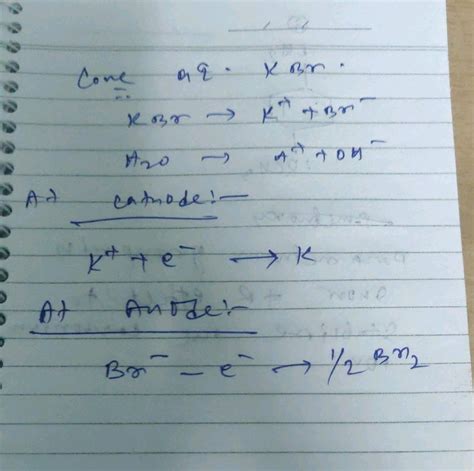 Conc aq. KBr.
KBr → K⁺ + Br⁻
H₂O → H⁺ + OH⁻
At cathode:-
K⁺ + e⁻ → K
At Anode:-
Br⁻ - e⁻ → 1/2 Br₂